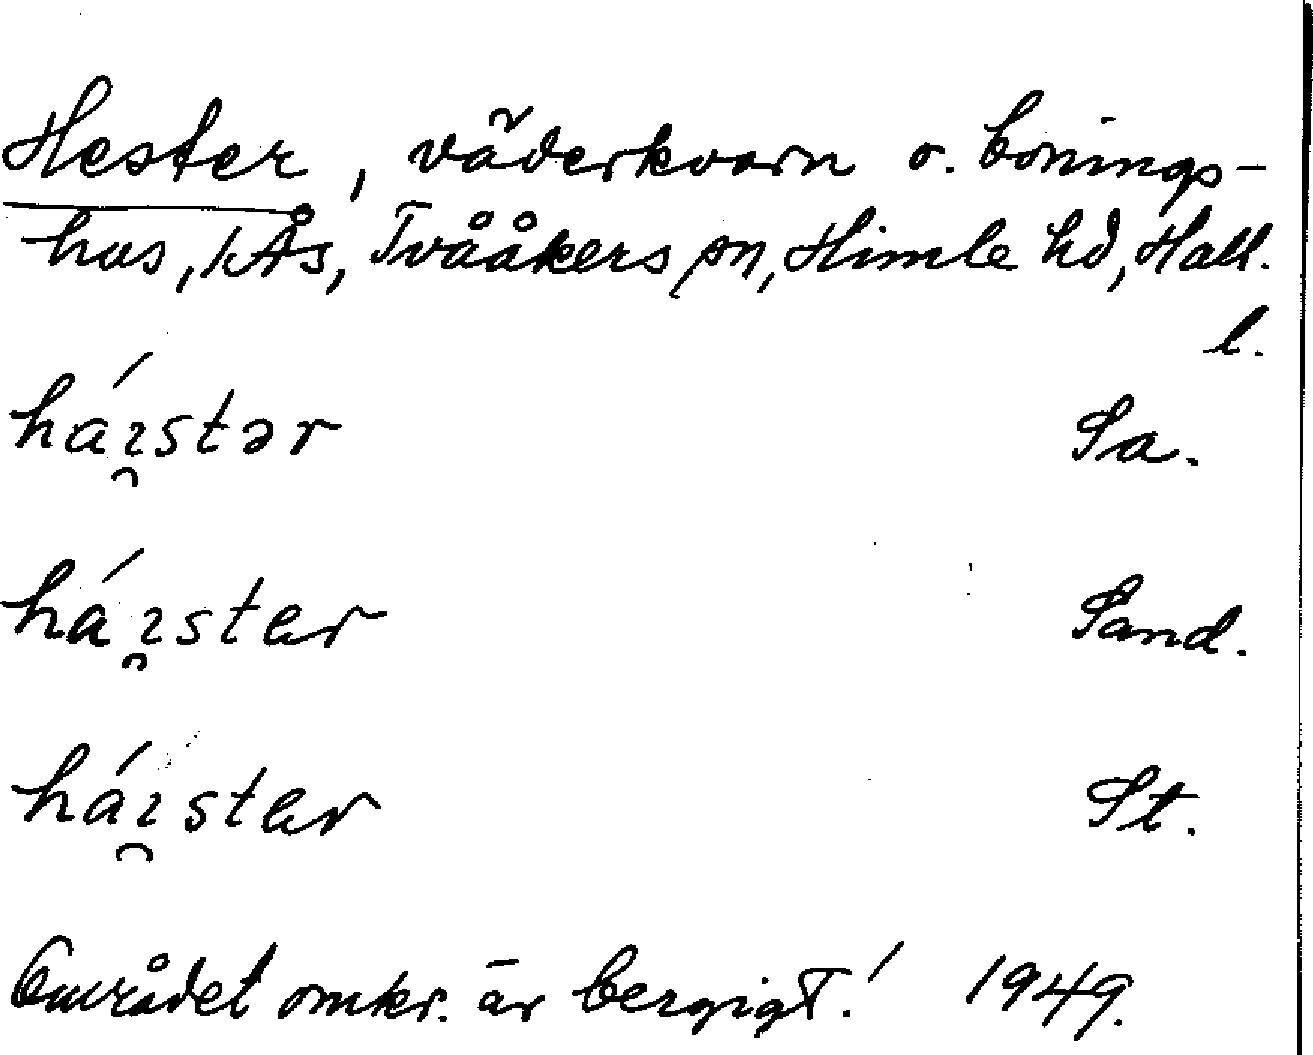 Hester, väderkvarn o. bonings-
hus, i Ås, Tvååkers sn, Himle hd, Hall.
l.
háı̯stər Sa.
háı̯stər Sand.
háı̯stər St.
Området omkr. är bergigt! 1949.